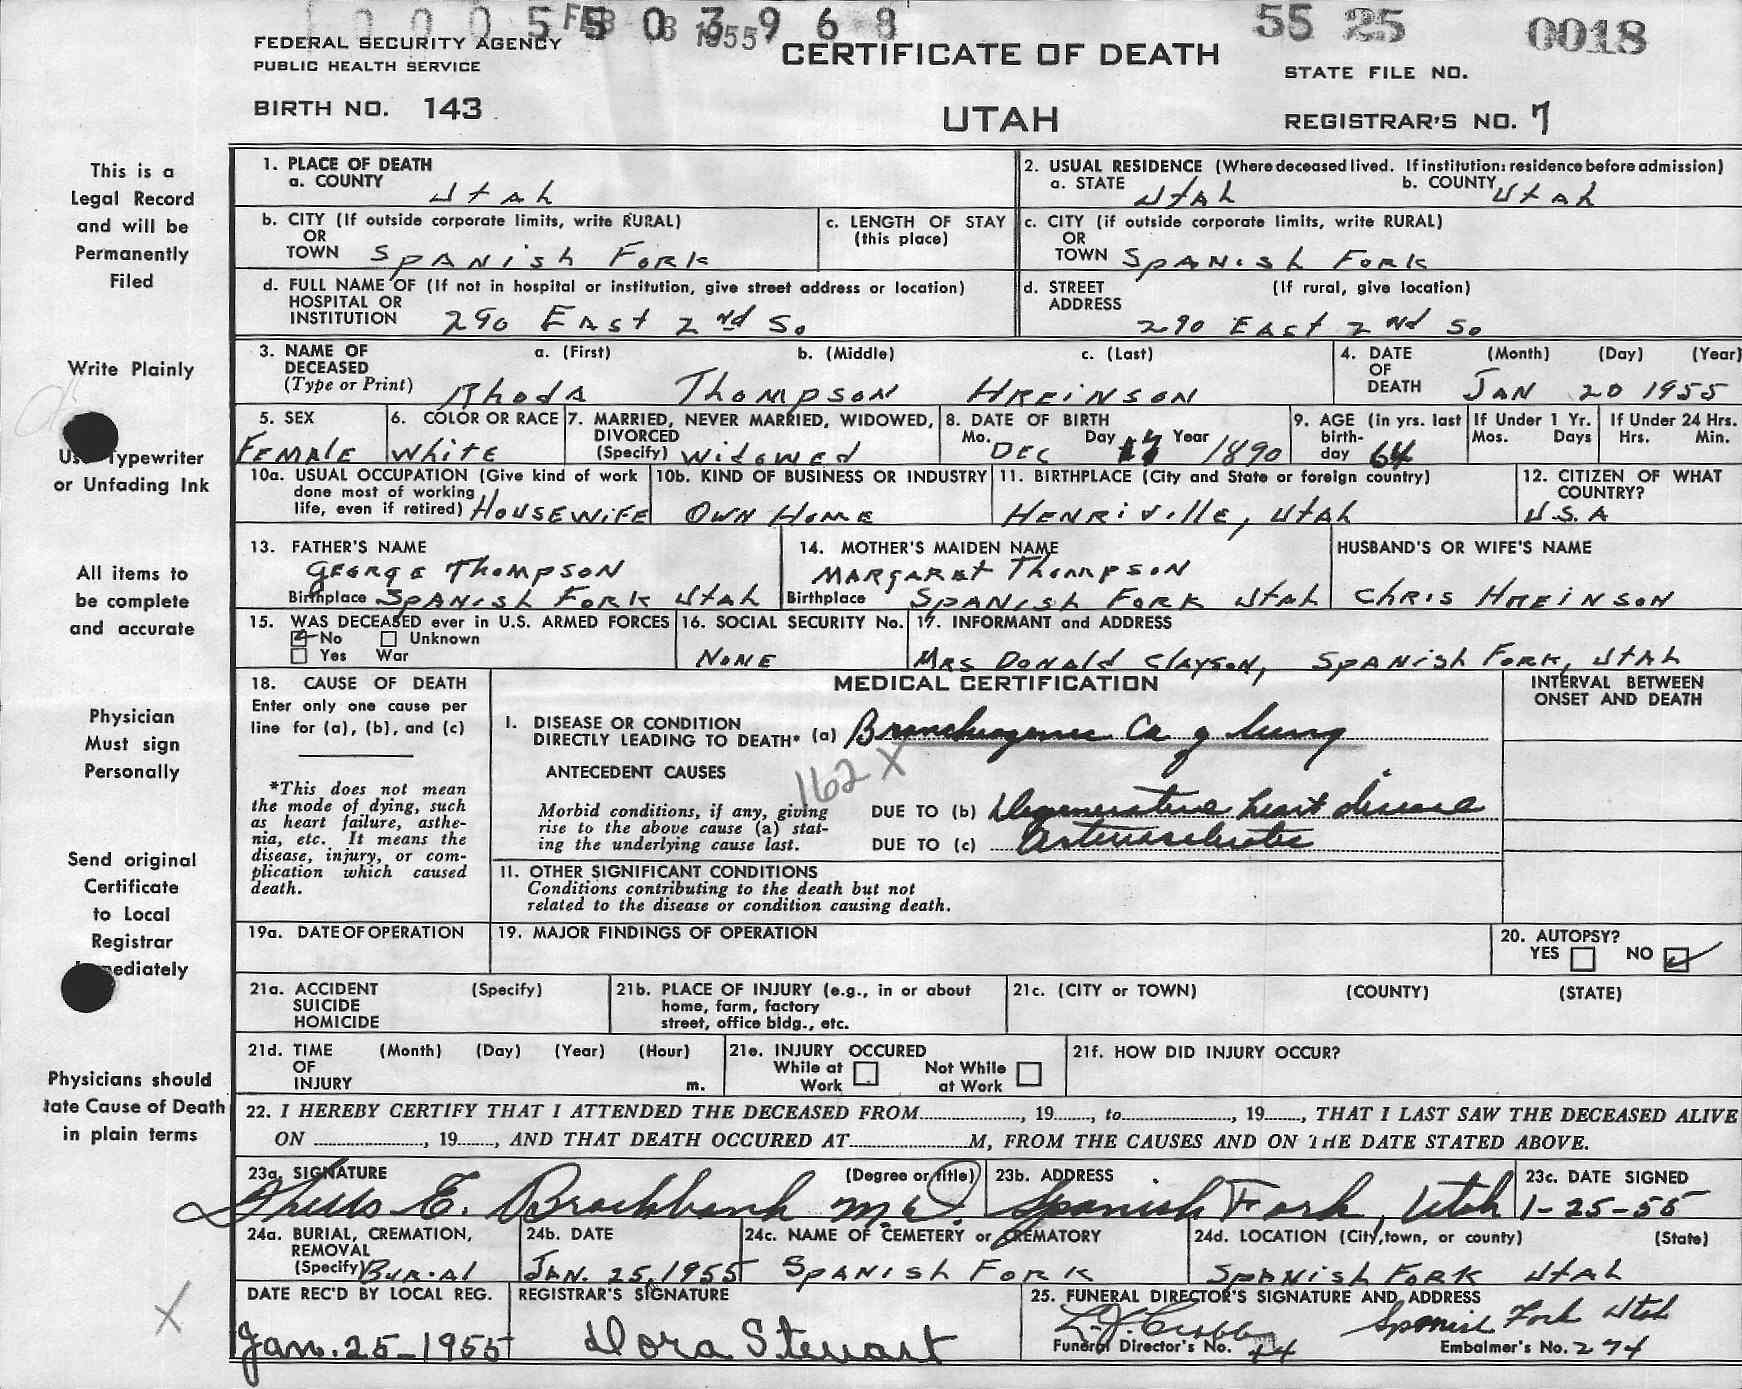 0 0 0 5 5 0 3 9 6 8
FEB 8 1955
55 25 0018
FEDERAL SECURITY AGENCY
PUBLIC HEALTH SERVICE
CERTIFICATE OF DEATH
STATE FILE NO.
BIRTH NO. 143
UTAH
REGISTRAR'S NO. 7
This is a
Legal Record
and will be
Permanently
Filed
Write Plainly
Typewriter
or Unfading Ink
All items to
be complete
and accurate
Physician
Must sign
Personally
Send original
Certificate
to Local
Registrar
mediately
Physicians should
tate Cause of Death
in plain terms
X
1. PLACE OF DEATH
a. COUNTY Utah
2. USUAL RESIDENCE (Where deceased lived. If institution: residence before admission)
a. STATE Utah b. COUNTY Utah
b. CITY (If outside corporate limits, write RURAL)
OR
TOWN Spanish Fork
c. LENGTH OF STAY
(this place)
c. CITY (if outside corporate limits, write RURAL)
OR
TOWN Spanish Fork
d. FULL NAME OF (If not in hospital or institution, give street address or location)
HOSPITAL OR
INSTITUTION 290 East 2nd So
d. STREET (If rural, give location)
ADDRESS
290 East 2nd So
3. NAME OF a. (First) b. (Middle) c. (Last)
DECEASED
(Type or Print) Rhoda Thompson Hreinson
4. DATE (Month) (Day) (Year)
OF
DEATH Jan 20 1955
5. SEX
Female
6. COLOR OR RACE
White
7. MARRIED, NEVER MARRIED, WIDOWED,
DIVORCED
(Specify) Widowed
8. DATE OF BIRTH
Mo. Dec Day Year 1890
9. AGE (in yrs. last
birth-
day 64
If Under 1 Yr.
Mos. Days
If Under 24 Hrs.
Hrs. Min.
10a. USUAL OCCUPATION (Give kind of work
done most of working
life, even if retired) Housewife
10b. KIND OF BUSINESS OR INDUSTRY
Own Home
11. BIRTHPLACE (City and State or foreign country)
Henriville, Utah
12. CITIZEN OF WHAT
COUNTRY?
U.S.A
13. FATHER'S NAME
George Thompson
Birthplace Spanish Fork Utah
14. MOTHER'S MAIDEN NAME
Margaret Thompson
Birthplace Spanish Fork Utah
HUSBAND'S OR WIFE'S NAME
Chris Hreinson
15. WAS DECEASED ever in U.S. ARMED FORCES
No Unknown
Yes War
16. SOCIAL SECURITY No.
None
17. INFORMANT and ADDRESS
Mrs Donald Clayson, Spanish Fork, Utah
18. CAUSE OF DEATH
Enter only one cause per
line for (a), (b), and (c)
*This does not mean
the mode of dying, such
as heart failure, asthe-
nia, etc. It means the
disease, injury, or com-
plication which caused
death.
MEDICAL CERTIFICATION
INTERVAL BETWEEN
ONSET AND DEATH
I. DISEASE OR CONDITION
DIRECTLY LEADING TO DEATH* (a) Bronchiogenic Ca of lung
162 X
ANTECEDENT CAUSES
Morbid conditions, if any, giving
rise to the above cause (a) stat-
ing the underlying cause last.
DUE TO (b) Degenerative heart disease
DUE TO (c) Arteriosclerotic
11. OTHER SIGNIFICANT CONDITIONS
Conditions contributing to the death but not
related to the disease or condition causing death.
19a. DATE OF OPERATION
19. MAJOR FINDINGS OF OPERATION
20. AUTOPSY?
YES NO
21a. ACCIDENT (Specify)
SUICIDE
HOMICIDE
21b. PLACE OF INJURY (e.g., in or about
home, farm, factory
street, office bldg., etc.
21c. (CITY or TOWN) (COUNTY) (STATE)
21d. TIME (Month) (Day) (Year) (Hour)
OF
INJURY m.
21e. INJURY OCCURED
While at Not While
Work at Work
21f. HOW DID INJURY OCCUR?
22. I HEREBY CERTIFY THAT I ATTENDED THE DECEASED FROM ............, 19......, to ............, 19......, THAT I LAST SAW THE DECEASED ALIVE
ON ............, 19......, AND THAT DEATH OCCURED AT ............M, FROM THE CAUSES AND ON THE DATE STATED ABOVE.
23a. SIGNATURE (Degree or title)
E. Brockbank M.D.
23b. ADDRESS
Spanish Fork, Utah
23c. DATE SIGNED
1-25-55
24a. BURIAL, CREMATION,
REMOVAL
(Specify) Burial
24b. DATE
Jan. 25, 1955
24c. NAME OF CEMETERY or CREMATORY
Spanish Fork
24d. LOCATION (City, town, or county) (State)
Spanish Fork Utah
DATE REC'D BY LOCAL REG.
Jan. 25-1955
REGISTRAR'S SIGNATURE
Dora Stewart
25. FUNERAL DIRECTOR'S SIGNATURE AND ADDRESS
Spanish Fork Utah
Funeral Director's No. 44 Embalmer's No. 274